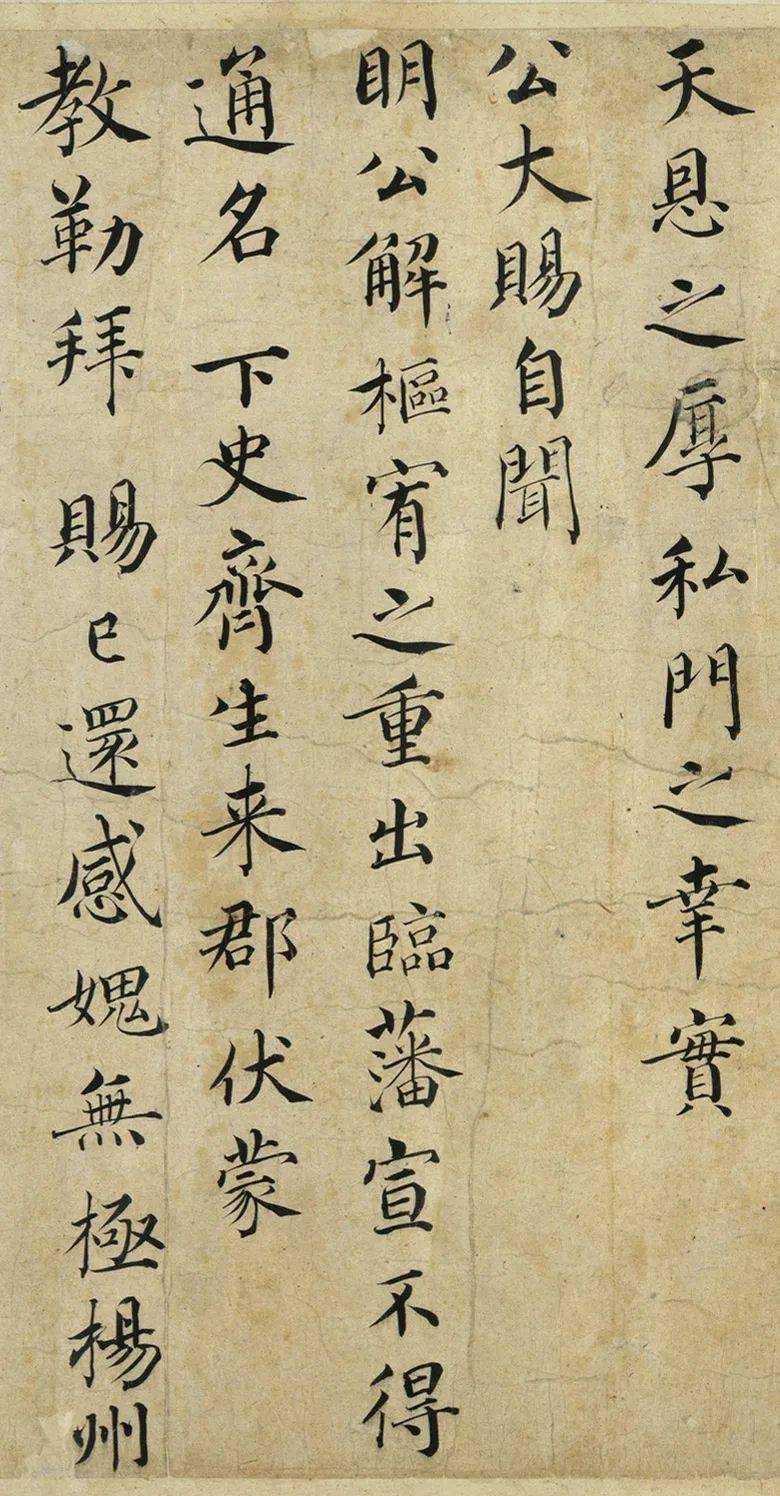 天恩之厚私門之幸實
公大賜自聞
明公解樞宥之重出臨藩宣不得
通名 下史齊生来郡伏蒙
教勒拜 賜已還感媿無極楊州